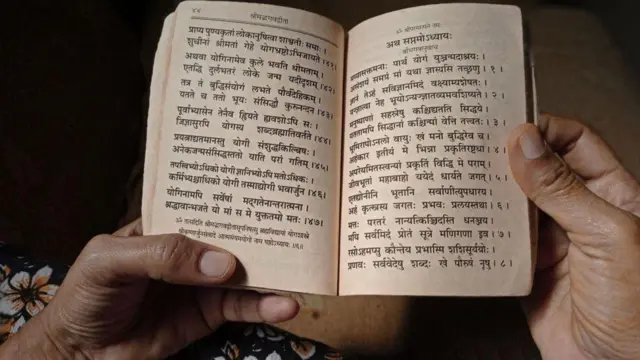 ४४
श्रीमद्भगवद्गीता
प्राप्य पुण्यकृतां लोकानुषित्वा शाश्वतीः समाः ।
शुचीनां श्रीमतां गेहे योगभ्रष्टोऽभिजायते ।४१।
अथवा योगिनामेव कुले भवति धीमताम् ।
एतद्धि दुर्लभतरं लोके जन्म यदीदृशम् ।४२।
तत्र तं बुद्धिसंयोगं लभते पौर्वदेहिकम् ।
यतते च ततो भूयः संसिद्धौ कुरुनन्दन ।४३।
पूर्वाभ्यासेन तेनैव ह्रियते ह्यवशोऽपि सः ।
जिज्ञासुरपि योगस्य शब्दब्रह्मातिवर्तते ।४४।
प्रयत्नाद्यतमानस्तु योगी संशुद्धकिल्बिषः ।
अनेकजन्मसंसिद्धस्ततो याति परां गतिम् ।४५।
तपस्विभ्योऽधिको योगी ज्ञानिभ्योऽपि मतोऽधिकः ।
कर्मिभ्यश्चाधिको योगी तस्माद्योगी भवार्जुन ।४६।
योगिनामपि सर्वेषां मद्गतेनान्तरात्मना ।
श्रद्धावान्भजते यो मां स मे युक्ततमो मतः ।४७।
ॐ तत्सदिति श्रीमद्भगवद्गीतासूपनिषत्सु ब्रह्मविद्यायां योगशास्त्रे
श्रीकृष्णार्जुनसंवादे आत्मसंयमयोगो नाम षष्ठोऽध्यायः ।६।
ॐ श्रीपरमात्मने नमः
अथ सप्तमोऽध्यायः
श्रीभगवानुवाच
मय्यासक्तमनाः पार्थ योगं युञ्जन्मदाश्रयः ।
असंशयं समग्रं मां यथा ज्ञास्यसि तच्छृणु ।१।
ज्ञानं तेऽहं सविज्ञानमिदं वक्ष्याम्यशेषतः ।
यज्ज्ञात्वा नेह भूयोऽन्यज्ज्ञातव्यमवशिष्यते ।२।
मनुष्याणां सहस्रेषु कश्चिद्यतति सिद्धये ।
यततामपि सिद्धानां कश्चिन्मां वेत्ति तत्त्वतः ।३।
भूमिरापोऽनलो वायुः खं मनो बुद्धिरेव च ।
अहंकार इतीयं मे भिन्ना प्रकृतिरष्टधा ।
अपरेयमितस्त्वन्यां प्रकृतिं विद्धि मे पराम् ।
जीवभूतां महाबाहो ययेदं धार्यते जगत् ।५।
एतद्योनीनि भूतानि सर्वाणीत्युपधारय ।
अहं कृत्स्नस्य जगतः प्रभवः प्रलयस्तथा ।
मत्तः परतरं नान्यत्किञ्चिदस्ति धनञ्जय ।
मयि सर्वमिदं प्रोतं सूत्रे मणिगणा इव ।७।
रसोऽहमप्सु कौन्तेय प्रभास्मि शशिसूर्ययोः ।
प्रणवः सर्ववेदेषु शब्दः खे पौरुषं नृषु ।८।